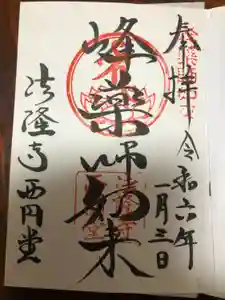 奉拝
令和六年
一月三日
峰薬師如来
法隆寺西円堂